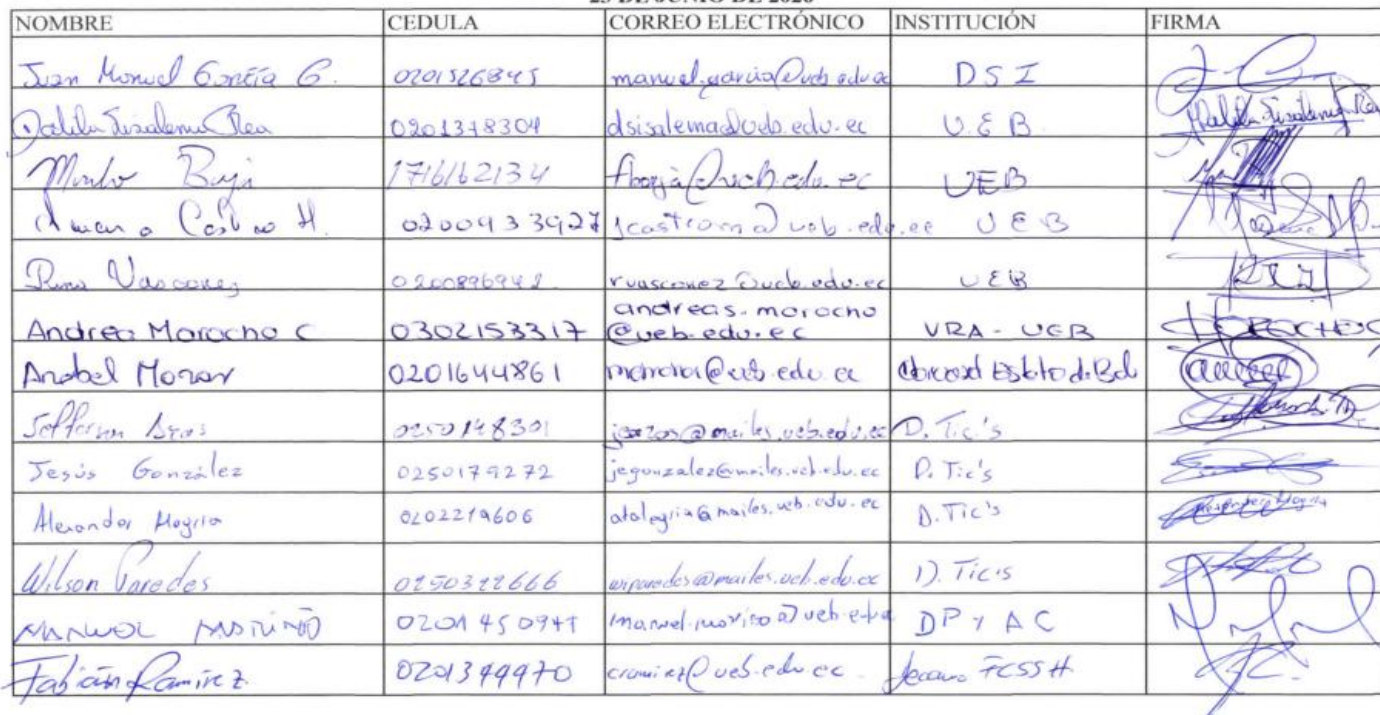 25 DE JUNIO DE 2026
NOMBRE CEDULA CORREO ELECTRÓNICO INSTITUCIÓN FIRMA
Juan Manuel García G. 0201526845 manuel.garcia@ueb.edu.ec DSI
Dalila Sisalema Rea 0201378304 dsisalema@ueb.edu.ec U.E.B. Dalila Sisalema Rea
Borja 1716162134 fborja@ueb.edu.ec UEB
Castro H. 0200933927 jcastrom@ueb.edu.ec UEB
Vasconez rvasconez@ueb.edu.ec UEB
Andrea Morocho C 0302153317 andreas.morocho@ueb.edu.ec VRA-UEB
Anabel Moran 0201644861
Jefferson 0250148301 D. Tic's
Jesús González 0250179272 jegonzalez@mailes.ueb.edu.ec D. Tic's
Alexander Alegria 0202219606 atalegria@mailes.ueb.edu.ec D. Tic's
Wilson Paredes 0250322666 wiparedes@mailes.ueb.edu.ec D. Tic's
MANUEL DP Y AC
Fabián Ramírez 0201349970 cramirez@ueb.edu.ec FCSSH.